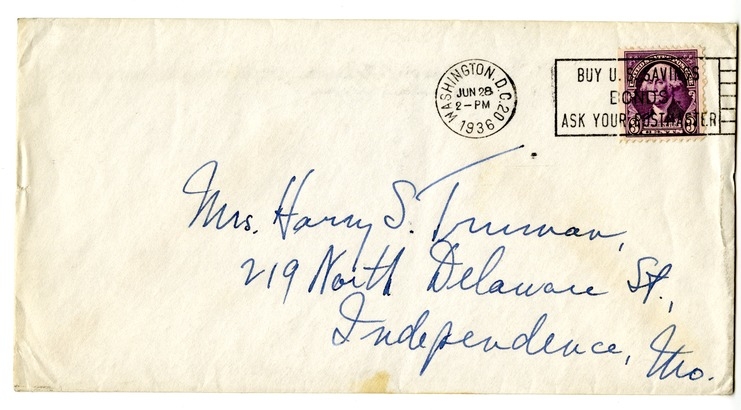 WASHINGTON, D.C. 20
JUN 28
2-PM
1936
BUY U.S. SAVINGS
BONDS
ASK YOUR POSTMASTER
3 3
Mrs. Harry S. Truman,
219 North Delaware St.,
Independence, Mo.